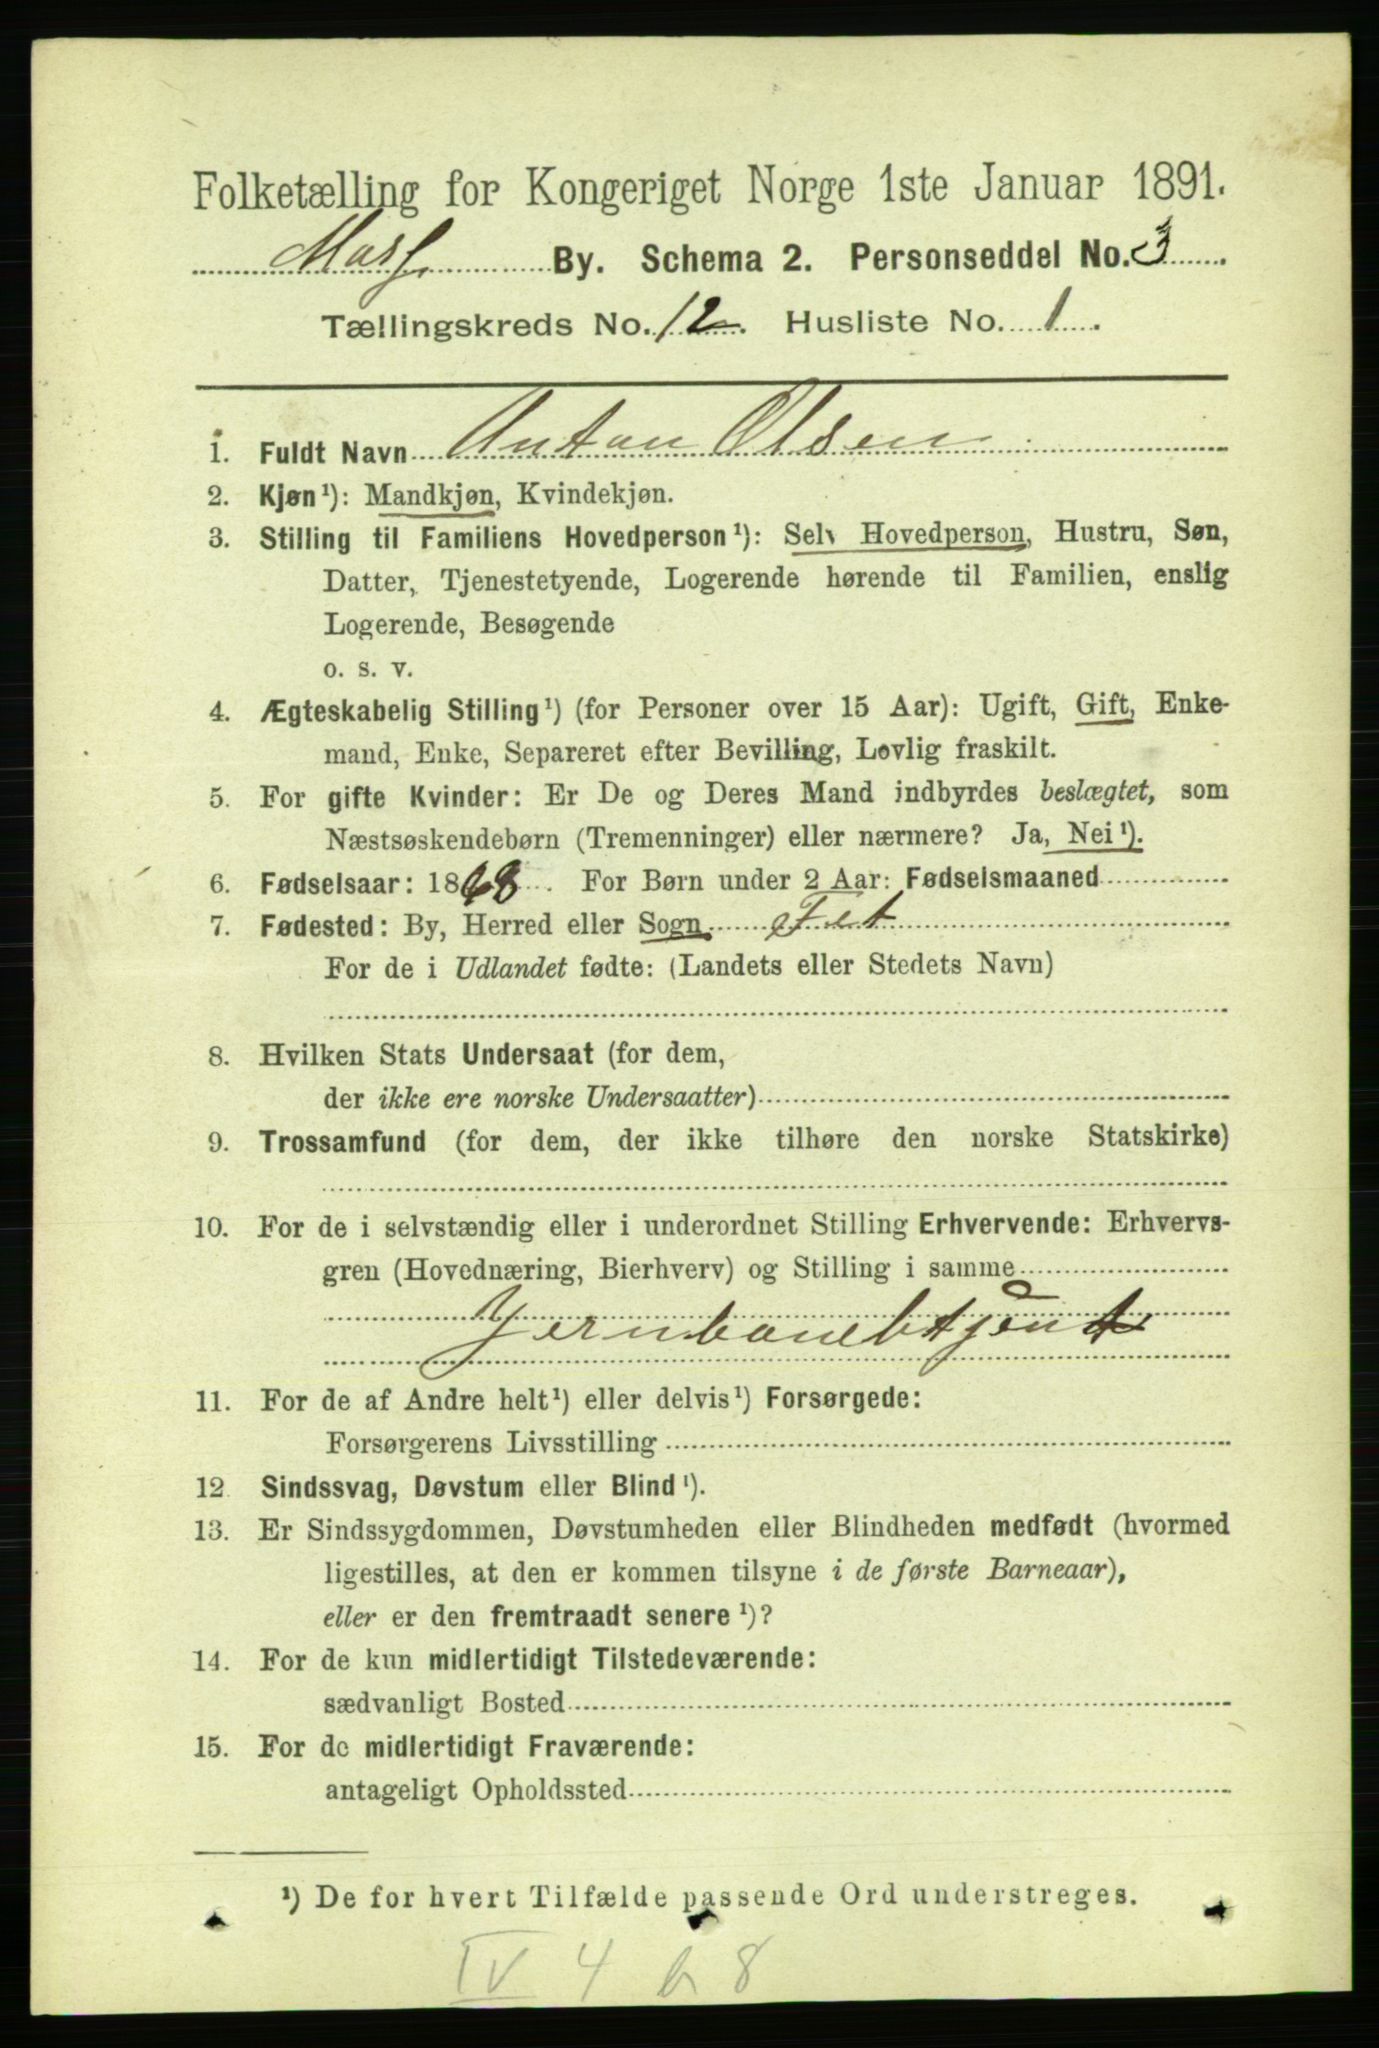 Folketælling for Kongeriget Norge 1ste Januar 1891.
By. Schema 2. Personseddel No. 3
Tællingskreds No. 12. Husliste No. 1.
1. Fuldt Navn Anton Olsen
2. Kjøn¹): Mandkjøn, Kvindekjøn.
3. Stilling til Familiens Hovedperson¹): Selv Hovedperson, Hustru, Søn,
Datter, Tjenestetyende, Logerende hørende til Familien, enslig
Logerende, Besøgende
o. s. v.
4. Ægteskabelig Stilling¹) (for Personer over 15 Aar): Ugift, Gift, Enke-
mand, Enke, Separeret efter Bevilling, Lovlig fraskilt.
5. For gifte Kvinder: Er De og Deres Mand indbyrdes beslægtet, som
Næstsøskendebørn (Tremenninger) eller nærmere? Ja, Nei¹).
6. Fødselsaar: 1868. For Børn under 2 Aar: Fødselsmaaned
7. Fødested: By, Herred eller Sogn Fet
For de i Udlandet fødte: (Landets eller Stedets Navn)
8. Hvilken Stats Undersaat (for dem,
der ikke ere norske Undersaatter)
9. Trossamfund (for dem, der ikke tilhøre den norske Statskirke)
10. For de i selvstændig eller i underordnet Stilling Erhvervende: Erhvervs-
gren (Hovednæring, Bierhverv) og Stilling i samme
Jernbanebtjent
11. For de af Andre helt¹) eller delvis¹) Forsørgede:
Forsørgerens Livsstilling
12 Sindssvag, Døvstum eller Blind¹).
13. Er Sindssygdommen, Døvstumheden eller Blindheden medfødt (hvormed
ligestilles, at den er kommen tilsyne i de første Barneaar),
eller er den fremtraadt senere¹)?
14. For de kun midlertidigt Tilstedeværende:
sædvanligt Bosted
15. For de midlertidigt Fraværende:
antageligt Opholdssted
¹) De for hvert Tilfælde passende Ord understreges.
IV 4 8